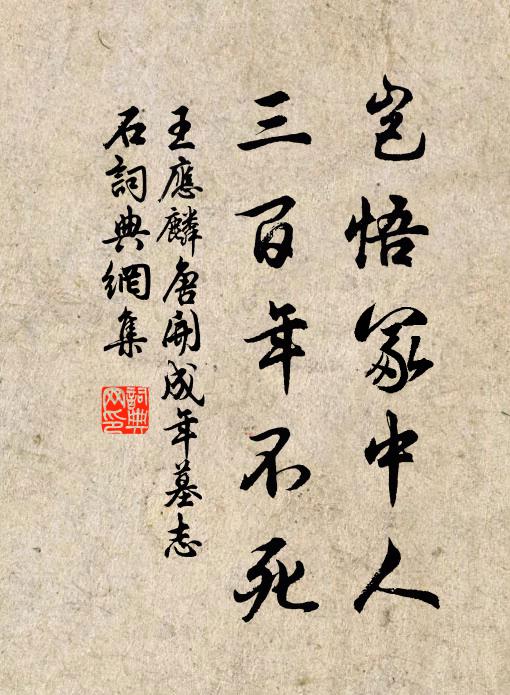 豈悟冢中人
三百年不死
王應麟唐開成年墓志
石詞典網集
詞典
网印